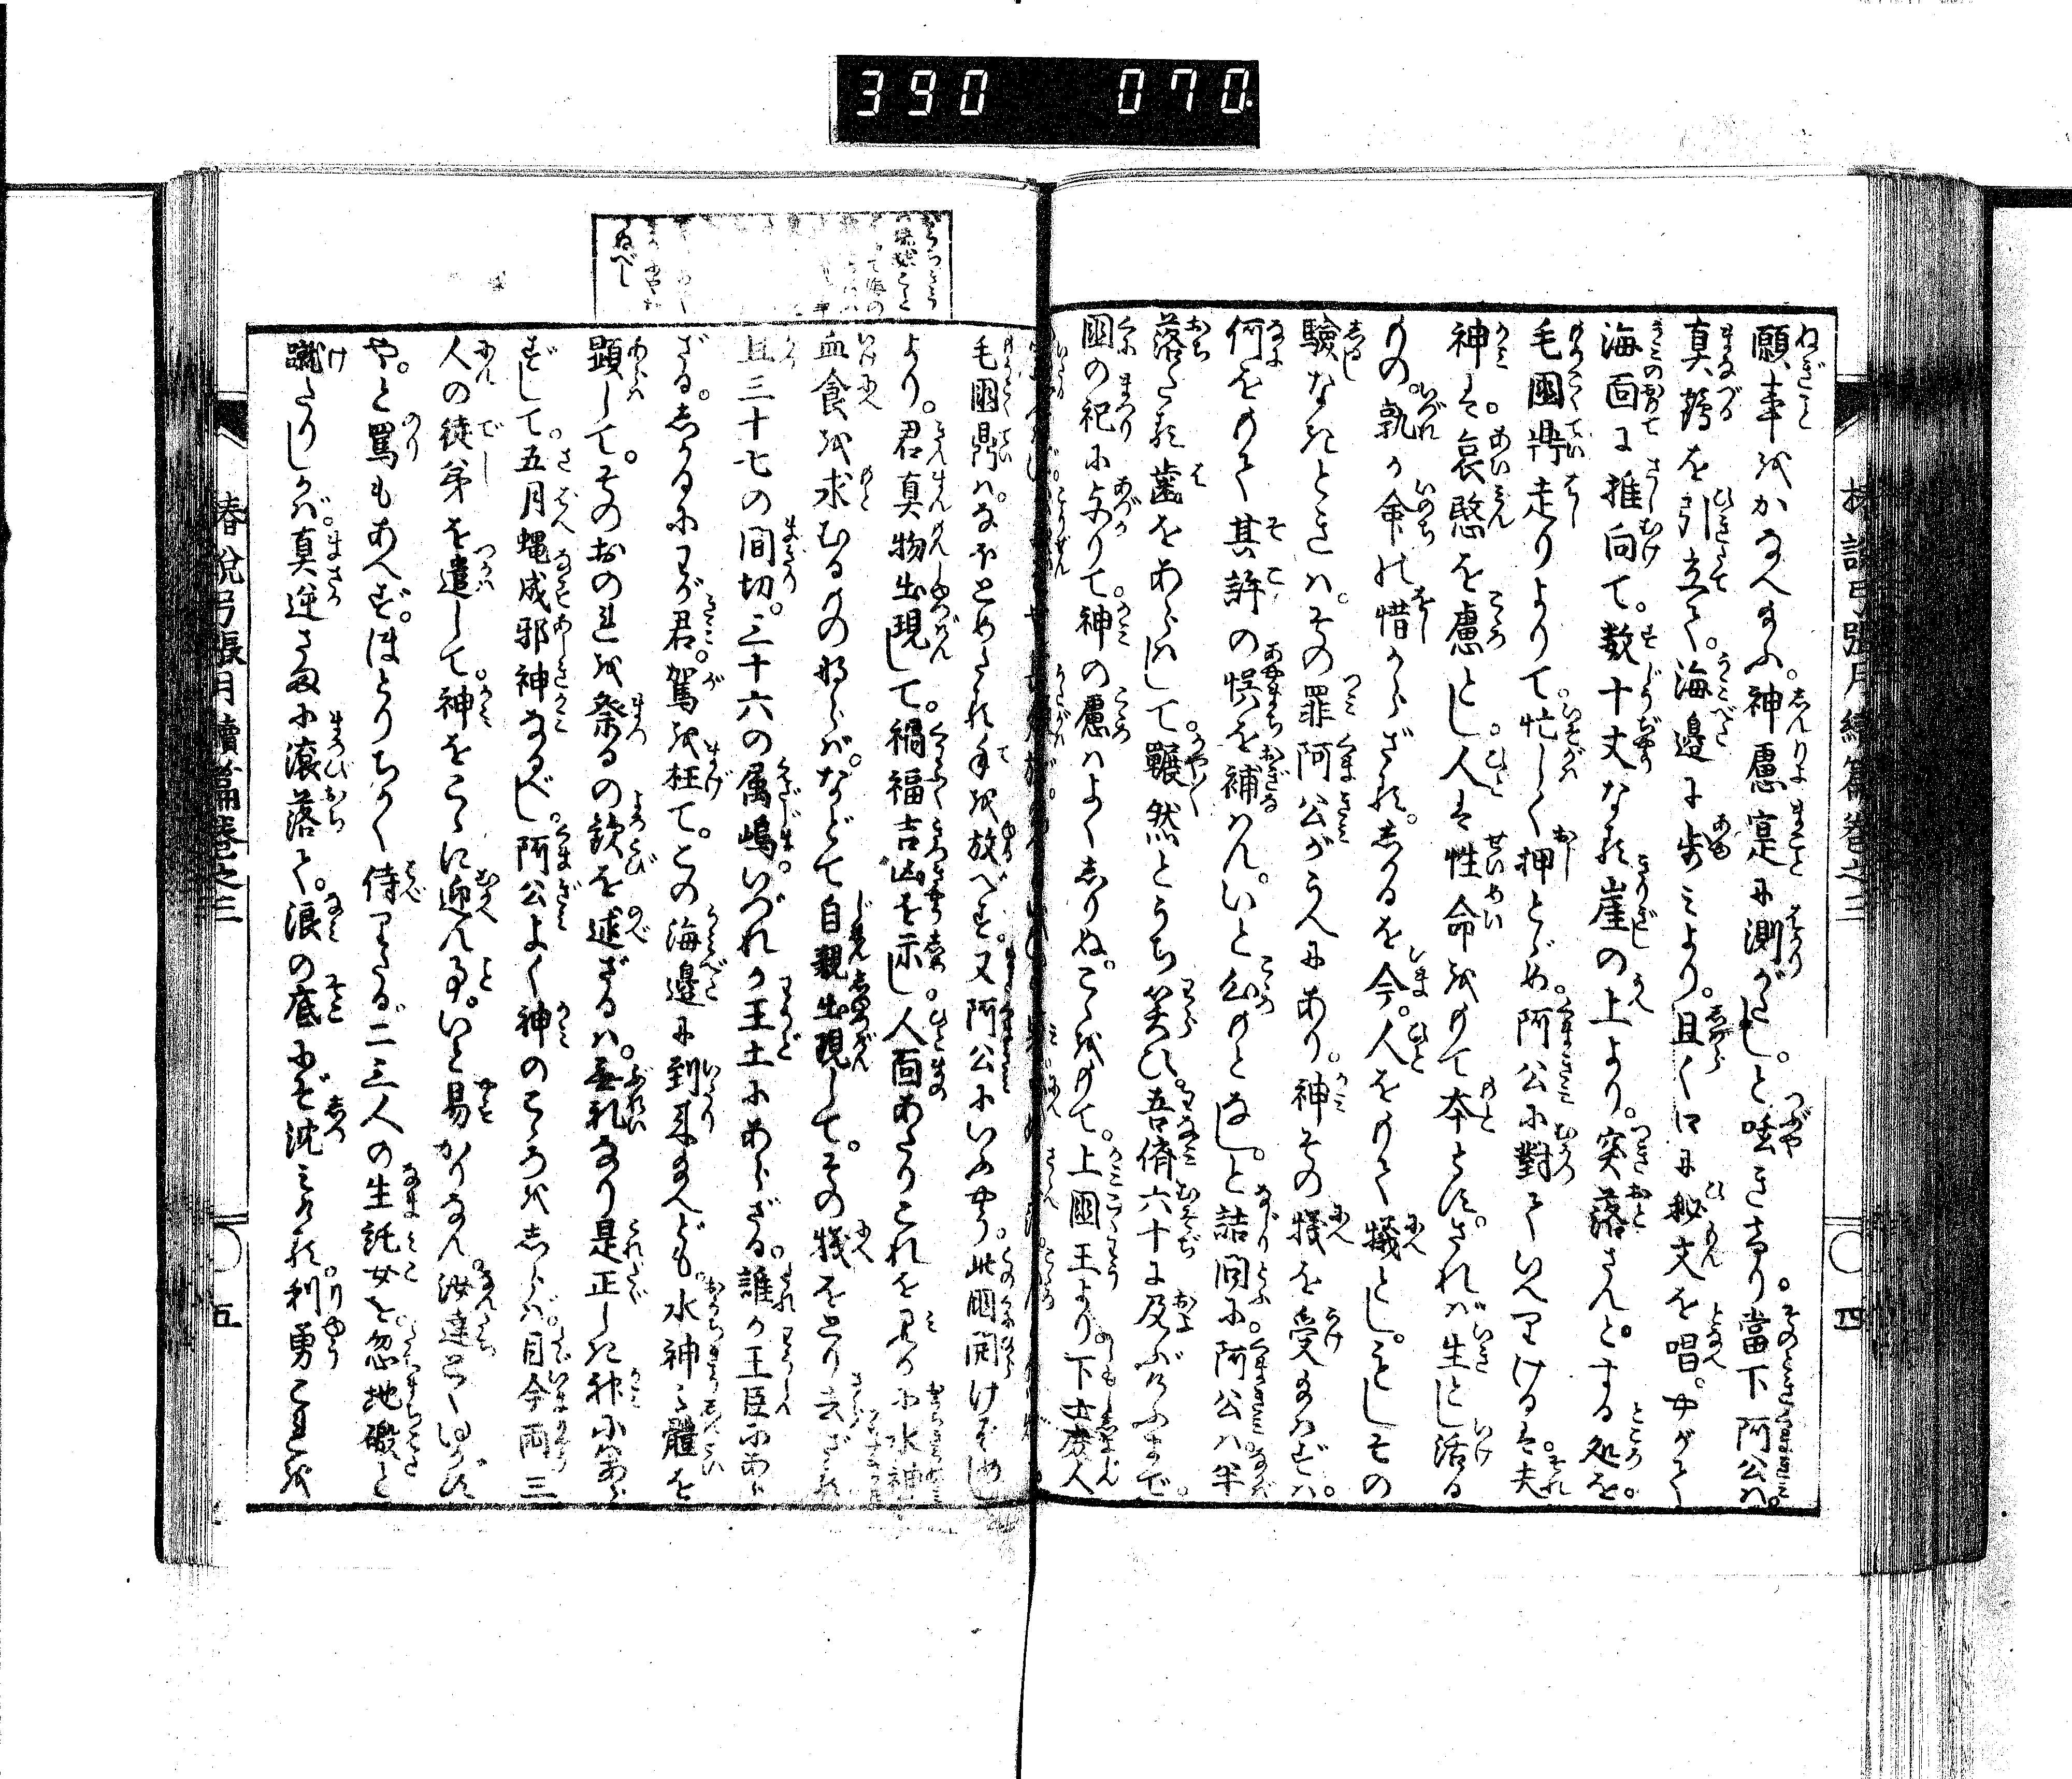 390 070
椿説弓張月續篇卷之三 四
願事をかなへ給ふ。神慮寔に測がたし。と呟きたり。當下阿公は。
真鶴を引立て。海邊に歩みより。且く口に秘文を唱。やがて
海面に推向て。数十丈なる崖の上より。突落さんとする処を。
毛國鼎走りよりて忙しく押とゞめ。阿公に對ていへりけるは。夫
神は。哀愍を慮とし。人は性命をもて本とす。されば生とし活る
もの。孰か命の惜からざる。しかるを今。人をもて犠とし。もしその
驗なきときは。その罪阿公がうへにあり。神その犠を受給はずは。
何をもて其許の悞を補はん。いと心もとなし。と詰問に。阿公は半
落たる歯をあらはして。囅然とうち笑ひ。吾儕六十に及ぶまで。
國の祀に与りて。神の慮はよくしりぬ。こゝをもて。上國王より。下士庶人
毛國鼎は。なほとめたる手を放べず。又阿公にいふやう。此國開けそめし
より。君真物出現して。禍福吉凶を示し。人面あたりこれを見るに水神
血食を求むるものならば。などて自親出現して。その犠をとり去ざる。
且三十七の間切。三十六の属嶋。いづれか王土にあらざる。誰か王臣にあら
ざる。しかるにわが君。駕を枉て。この海邊に到来給へども。水神は體を
顕して。そのおのれを祭るの歓を述ざるは。無礼なり。是正しき神にあら
ずして。五月蝿成邪神なるべし。阿公よく神のこゝろをしらば。目今両三
人の徒弟を遣して。神をこゝに迎ん事。いと易かりなん。汝達とくゆかず
や。と罵もあへず。ほとりちかく侍りたる。二三人の生託女を。忽地礑と
蹴たりしかば。真逆さまに滚落て。浪の底にぞ沈みける。利勇これを
春説弓張月續篇卷之三 五
ぬべし